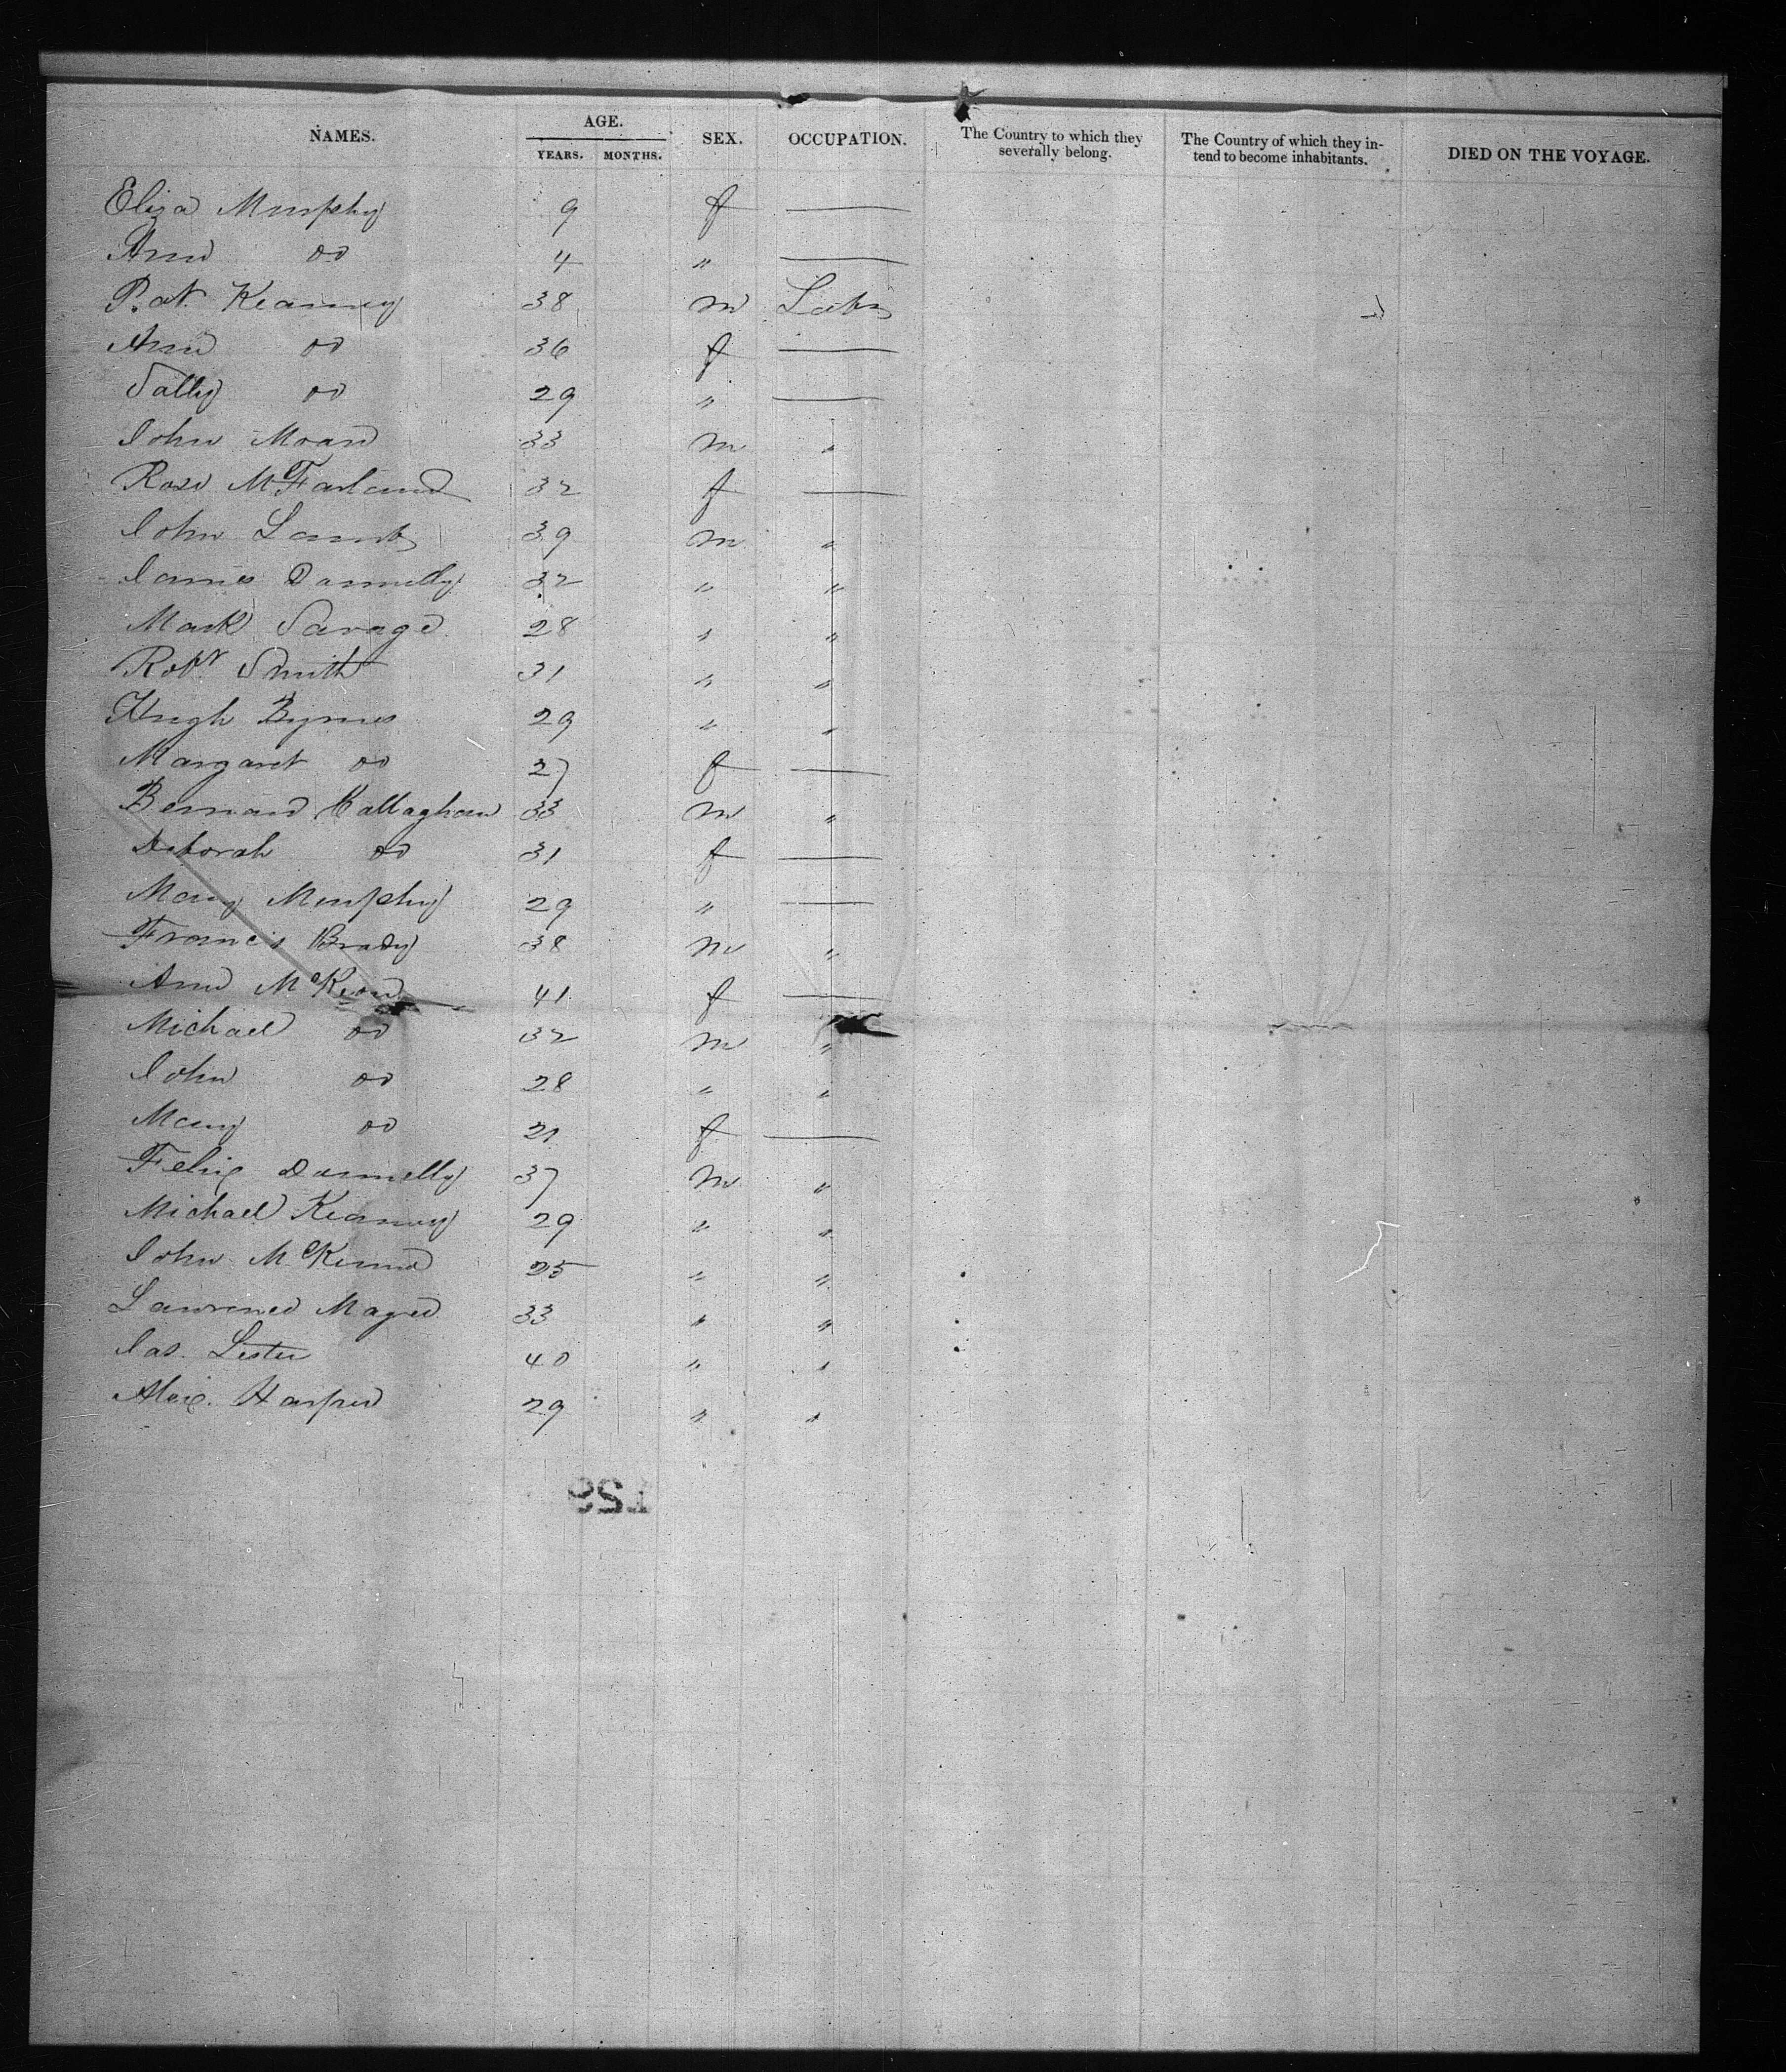 NAMES. AGE. SEX. OCCUPATION. The Country to which they severally belong. The Country of which they in- tend to become inhabitants. DIED ON THE VOYAGE.
YEARS. MONTHS.
Eliza Murphy 9 f —
Ann do 4 " —
Pat Kearney 38 m Labr
Ann do 36 f —
Sally do 29 " —
John Moan 33 m "
Rose McFarland 32 f —
John Lamb 39 m "
James Donnelly 32 " "
Mark Savage 28 " "
Robt Smith 31 " "
Hugh Byrnes 29 " "
Margaret do 27 f —
Bernard Callaghan 33 m "
Deborah do 31 f —
Mary Murphy 29 " —
Francis Brady 38 m "
Ann McKeon 41 f —
Michael do 32 m "
John do 28 " "
Mary do 21 f —
Felix Donnelly 37 m "
Michael Kearney 29 " "
John McKenna 25 " "
Lawrence Magee 33 " "
Jas. Lester 40 " "
Alex. Harper 29 " "